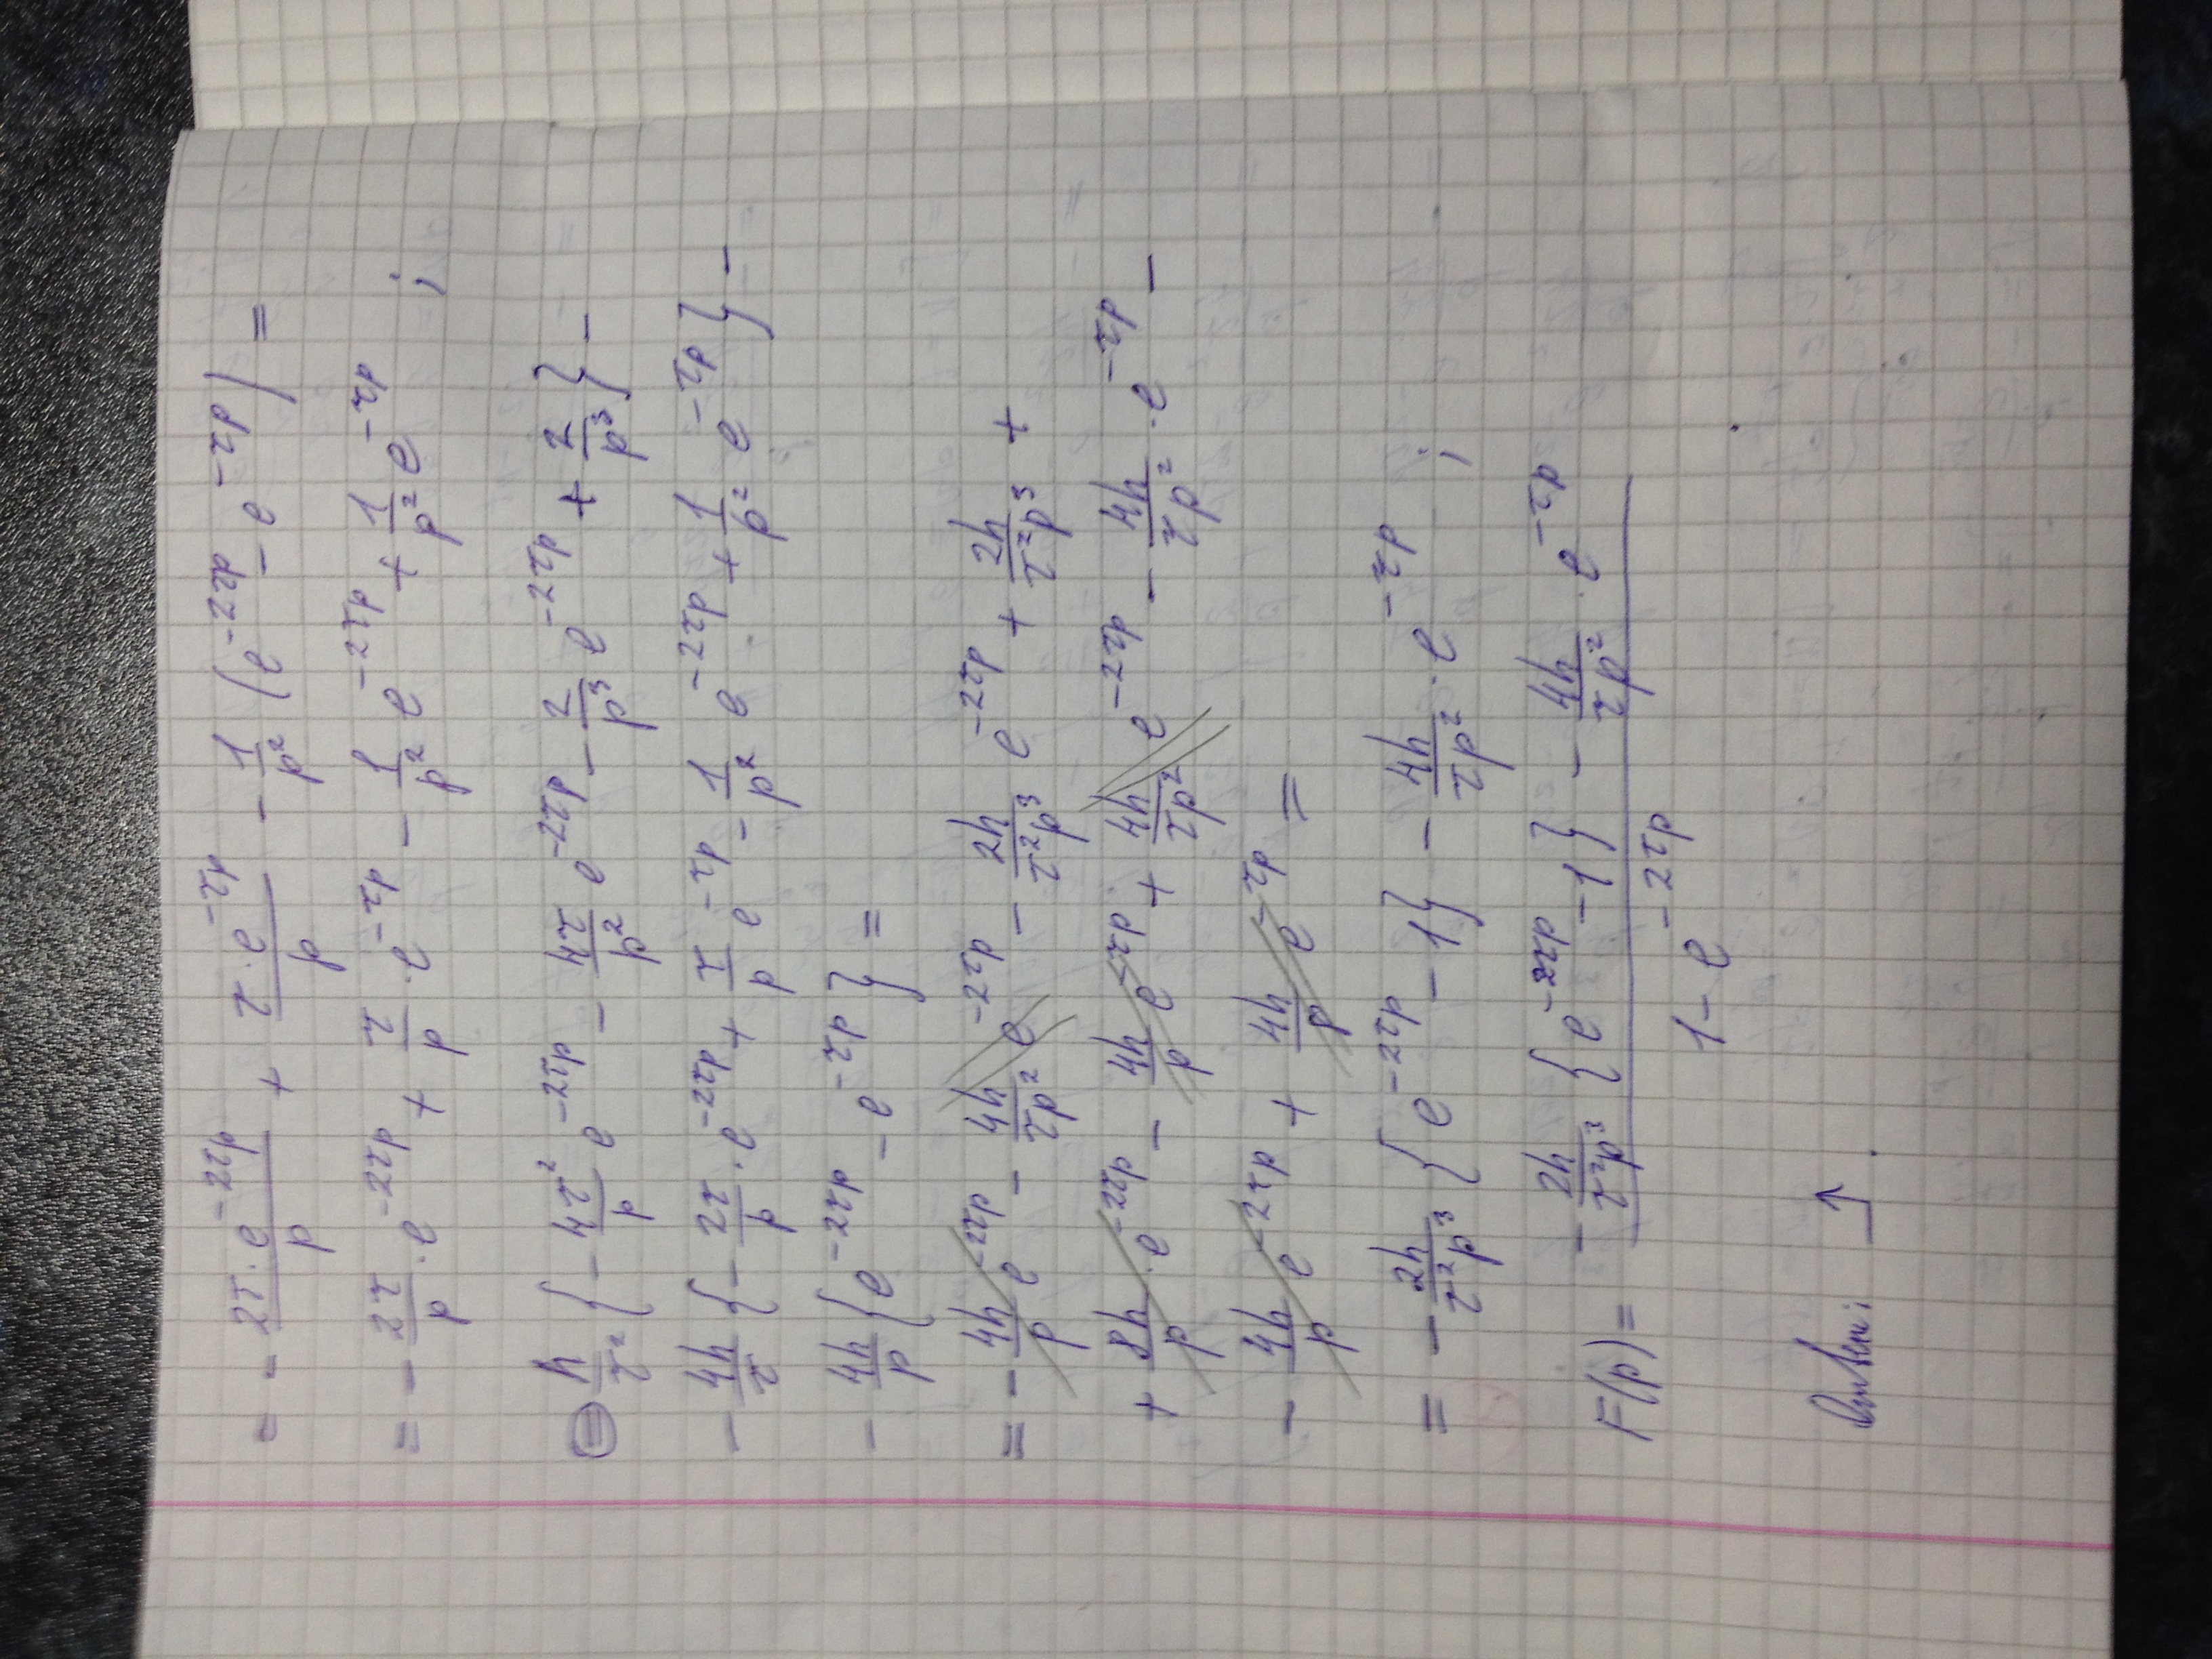 = - 2τ·e^(-2τp)/p + τ·e^(-τp)/p - 1/p² (e^(-2τp) - e^(-τp)) =
= - 2τ/p · e^(-2τp) + τ/p · e^(-τp) - 1/p² e^(-2τp) + 1/p² e^(-τp) ;
⊜ h/τ² { - 4τ²/p e^(-2τp) - 4τ/p² e^(-2τp) - 2/p³ e^(-2τp) + 2/p³ } -
- 4h/τ { - 2τ/p · e^(-2τp) + τ/p e^(-τp) - 1/p² e^(-2τp) + 1/p² e^(-τp) } -
- 4h/p { e^(-2τp) - e^(-τp) } =
= - 4h/p e^(-2τp) - 4h/τp² e^(-2τp) - 2h/τ²p³ e^(-2τp) + 2h/τ²p³ +
+ 8h/p · e^(-2τp) - 4h/p e^(-τp) + 4h/τp² e^(-2τp) - 4h/τp² · e^(-τp) -
- 4h/p e^(-2τp) + 4h/p e^(-τp) =
= - 2h/τ²p³ { e^(-2τp) - 1 } - 4h/τp² · e^(-τp) ;
F(p) = - 2h/τ²p³ { e^(-2τp) - 1 } - 4h/τp² · e^(-τp)
1 - e^(-2τp)